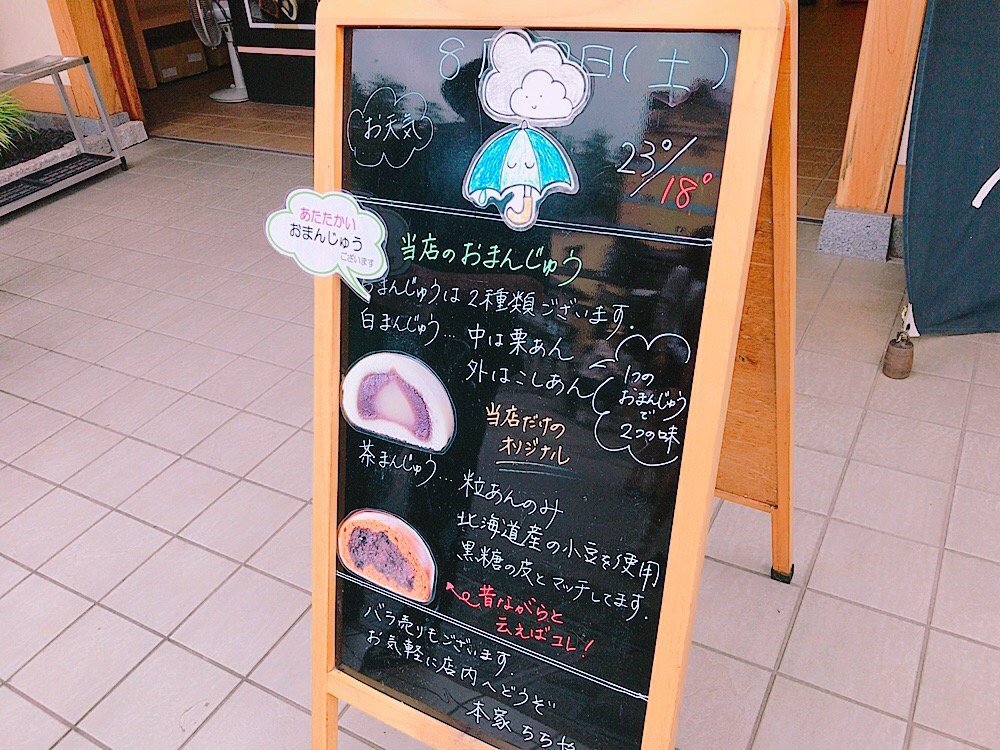 8月 日(土)
お天気
23°/18°
あたたかい
おまんじゅう
ございます
当店のおまんじゅう
おまんじゅうは2種類ございます.
白まんじゅう… 中は栗あん
外はこしあん
1つの
おまんじゅう
で
2つの味
当店だけの
オリジナル
茶まんじゅう… 粒あんのみ
北海道産の小豆を使用
黒糖の皮とマッチしてます.
昔ながらと
云えばコレ!
バラ売りもございます.
お気軽に店内へどうぞ
本家